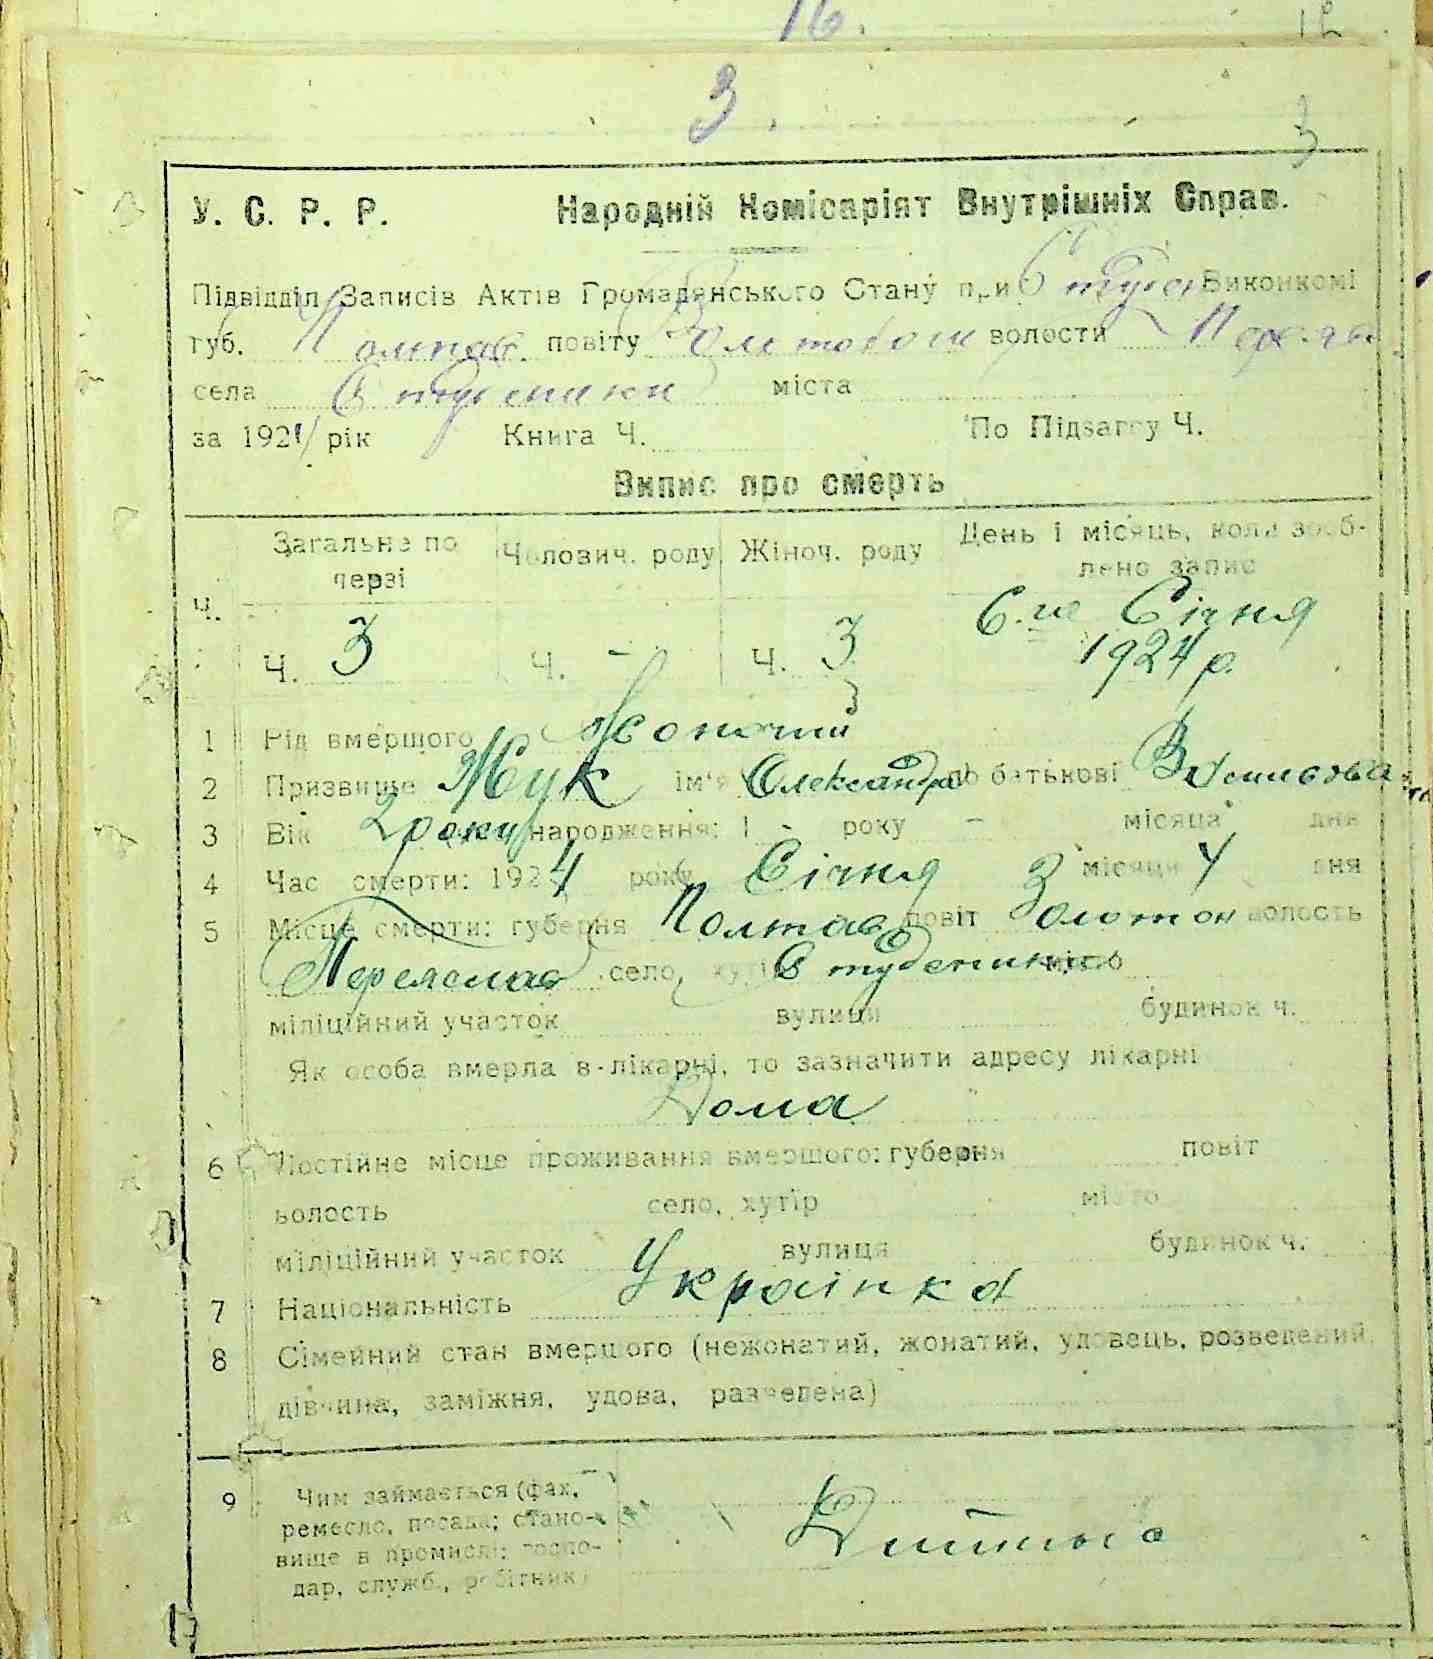 16.
12
3.
3
У. С. Р. Р. Народній Комісаріят Внутрішніх Справ.
Підвідділ Записів Актів Громадянського Стану при Студен Виконкомі
губ. Полтав. повіту Золотонош волости Переясл.
села Студеники міста
за 1924 рік Книга Ч. По Підзагсу Ч.
Випис про смерть
Загальне по черзі Чолович. роду Жіноч. роду День і місяць, коли зроб-
лено запис
Ч.
6.го Січня
Ч. 3 Ч. – Ч. 3 1924 р.
3
1 Рід вмершого Жоночий
2 Призвище Жук ім'я Олександра по батькові
3 Вік 2 роки народження: 1 - року - місяця дня
4 Час смерти: 1924 року Січня місяця 4 дня
5 Місце смерти: губерня Полтав повіт Золотон волость
Переяслав село, хутір Студеники місто
міліційний участок вулиця будинок ч.
Як особа вмерла в-лікарні, то зазначити адресу лікарні
Дома
6 Постійне місце проживання вмершого: губерня повіт
волость село, хутір місто
міліційний участок вулиця будинок ч.
7 Національність Украінка
8 Сімейний стан вмершого (нежонатий, жонатий, удовець, розведений,
дівчина, заміжня, удова, разведена)
9 Чим займається (фах,
ремесло, посада; стано-
вище в промислі: госпо-
дар, служб., робітник)
Дитина